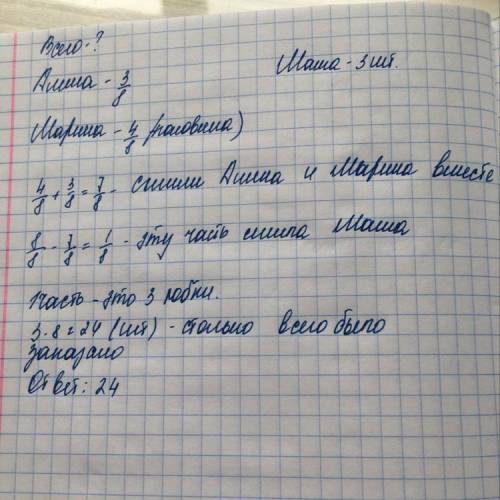 Всего-?
Маша - 3 шт.
Алина - 3/8
Марина - 4/8 (половина)
4/8 + 3/8 = 7/8 - сшили Алина и Марина вместе
8/8 - 7/8 = 1/8 - эту часть сшила Маша
1 часть - это 3 юбки.
3·8=24 (шт) - столько всего было
заказано
Ответ: 24